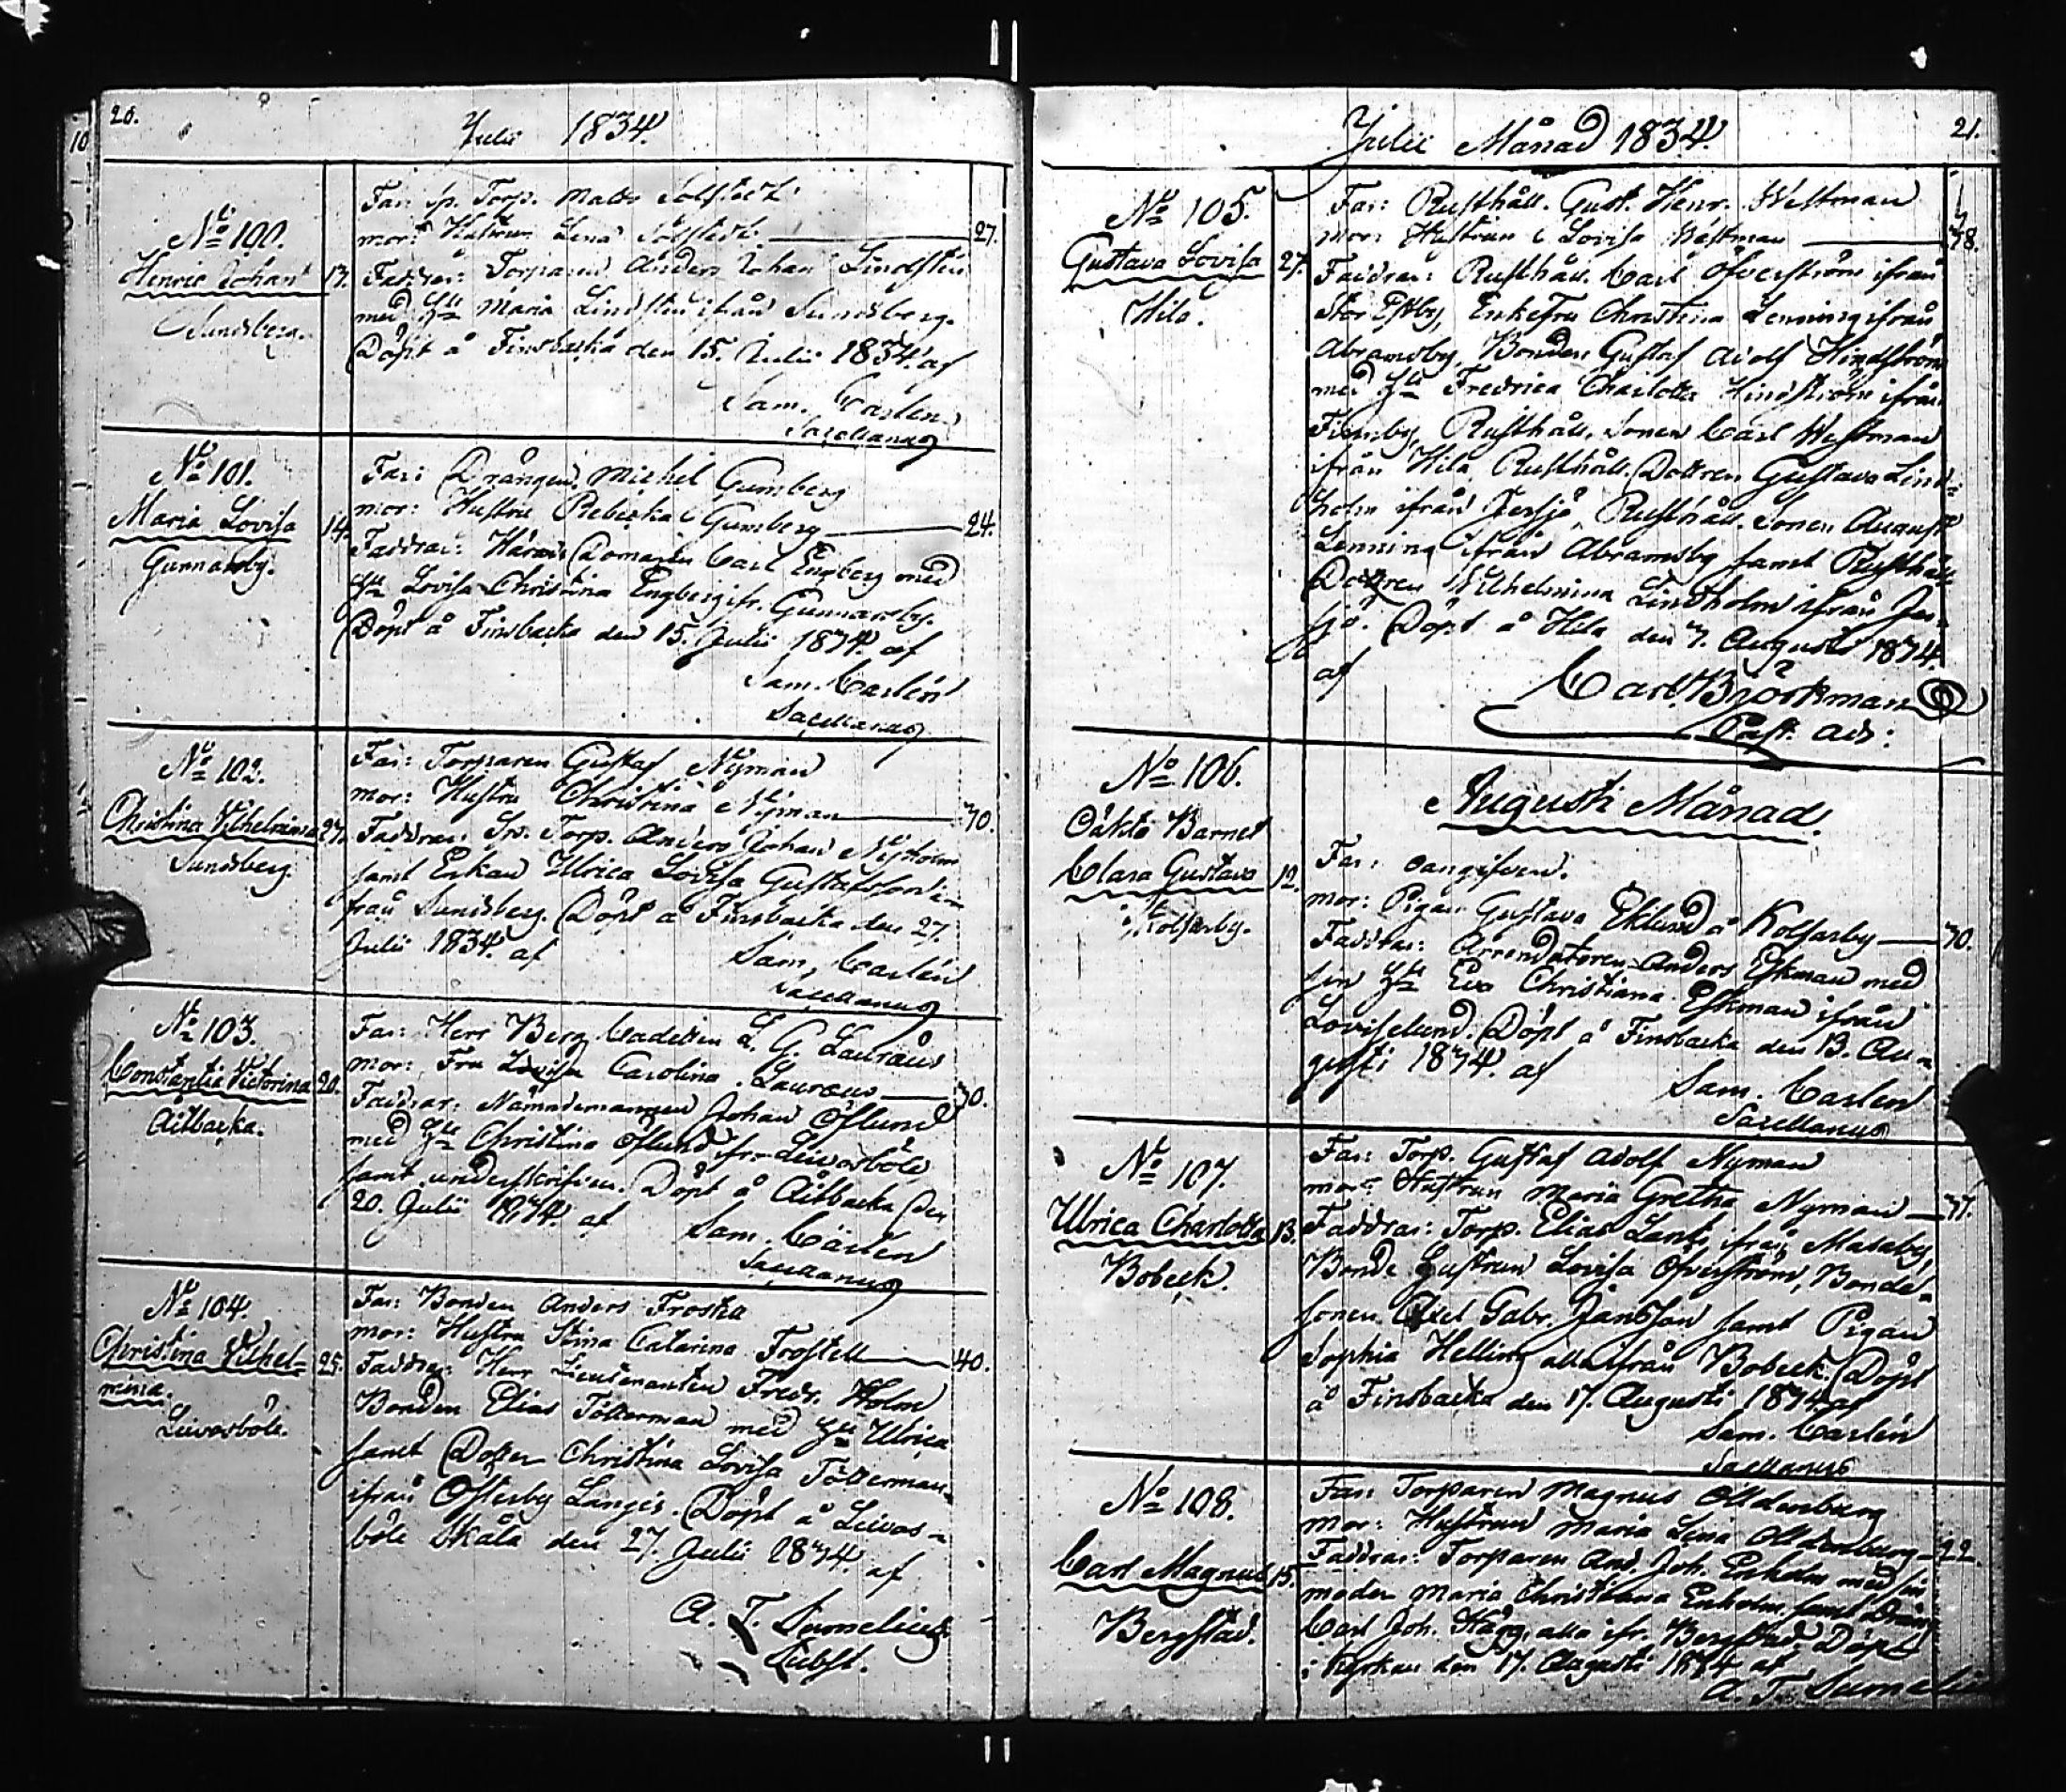 20.
Julii 1834.
No 100.
Henric Johan
Sundsberg.
13.
Far: Sp. Torp. Matts Solstedt
mor: Hustrun Lena Solstedt 27.
Faddrar: Torparen Anders Johan Lindsten
med Hu Maria Lindsten ifrån Sundsberg.
Döpt å Finsbacka den 15. Julii 1834. af
Sam. Carlén
Sacellanus
No 101.
Maria Lovisa
Gunnarsby.
14.
Far: Drängen Michel Gumberg
mor: Hustru Rebecka Gumberg 24.
Faddrar: Härads Domaren Carl Engberg med
Hu Lovisa Christina Engberg ifr. Gunnarsby.
Döpt å Finsbacka den 15. Julii 1834. af
Sam. Carlén
Sacellanus
No 102.
Christina Vilhelmina
Sundsberg
27.
Far: Torparen Gustaf Nyman
mor: Hustru Christina Nyman 30.
Faddrar: Sp. Torp. Anders Johan
samt Enkan Ulrica Lovisa Gustafsson i-
från Sundsberg. Döpt å Finsbacka den 27.
Julii 1834. af
Sam. Carlén
Sacellanus
No 103.
Constantia Victorina
Aitbacka.
20.
Far: Herr Berg Cadetten L. G. Lauræus
mor: Fru Lovisa Carolina Lauræus 30.
Faddrar: Nämndemannen Johan Öflund
med Hu Christina Öflund fr. Leivosböle,
samt underskrifven. Döpt å Aitbacka den
20. Julii 1834. af
Sam. Carlén
Sacellanus
No 104.
Christina Vilhel-
mina.
Leivosböle.
25.
Far: Bonden Anders Frostell
mor: Hustru Stina Catarina Frostell 40.
Faddrar: Herr Lieutenanten Fredr. Holm
Bonden Elias Tötterman med Hu Ulrica
samt Dotter Christina Lovisa Tötterman
ifrån Österby Långis. Döpt å Leivos-
böle Skåla den 27. Julii 1834. af
A. T. Sumelius
Subst.
Julii Månad 1834.
21.
No 105.
Gustava Lovisa
Hila.
27.
Far: Rusthåll. Gust. Henr. Westman
mor: Hustrun Lovisa Westman 38.
Faddrar: Rusthåll. Carl Öfverström ifrån
Stor Estby, Enkefru Christina Lenning ifrån
Abramsby, Bonden Gustaf Adolf Hindström
med Hu Fredrica Charlotta Hindström ifrån
Finnby, Rusthåll. Sonen Carl Westman
ifrån Hila, Rusthåll. Dottren Gustava Lind-
holm ifrån Jersjö, Rusthåll. Sonen August
Lenning ifrån Abramsby samt Rusthåll.
Dottren Wilhelmina Lindholm ifrån Jer-
sjö. Döpt å Hila den 7. Augusti 1834.
af
Carl Björkman
Past. adj:
No 106.
Oäkta Barnet
Clara Gustava
Kolsarby.
12.
Augusti Månad.
Far: oangifven.
mor: Pigan Gustava Eklund å Kolsarby 30.
Faddrar: Arrendatoren Anders Ekman med
sin Hu Eva Christiana Ekman ifrån
Loviselund. Döpt å Finsbacka den 13. Au-
gusti 1834 af
Sam. Carlén
Sacellanus
No 107.
Ulrica Charlotta
Bobeck.
13.
Far: Torp. Gustaf Adolf Nyman
mor: Hustrun Maria Gretha Nyman 37.
Faddrar: Torp. Elias Lants ifrån Masaby,
Bonde Hustrun Lovisa Öfverström, Bonde-
Sonen Axel Gabr. Jansson samt Pigan
Sophia Helling alla ifrån Bobeck. Döpt
å Finsbacka den 17. Augusti 1834 af
Sam. Carlén
Sacellanus
No 108.
Carl Magnus
Bergstad.
15.
Far: Torparen Magnus Olldenburg
Mor: Hustrun Maria Lena Olldenburg 22.
Faddrar: Torparen And. Joh. Enholm med sin
moder Maria Christiana Enholm samt Dräng.
Carl Joh. Hägg, alla ifr. Bergstad. Döpt
i Kyrkan den 17. Augusti 1834 af
A. T. Sumelius